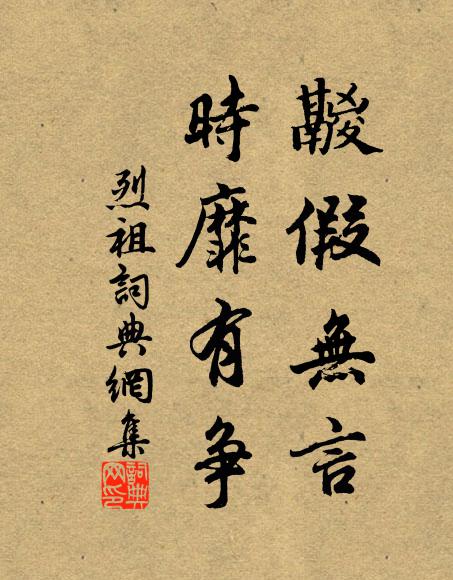 鬷假無言
時靡有争
烈祖詞典網集
詞典
网印